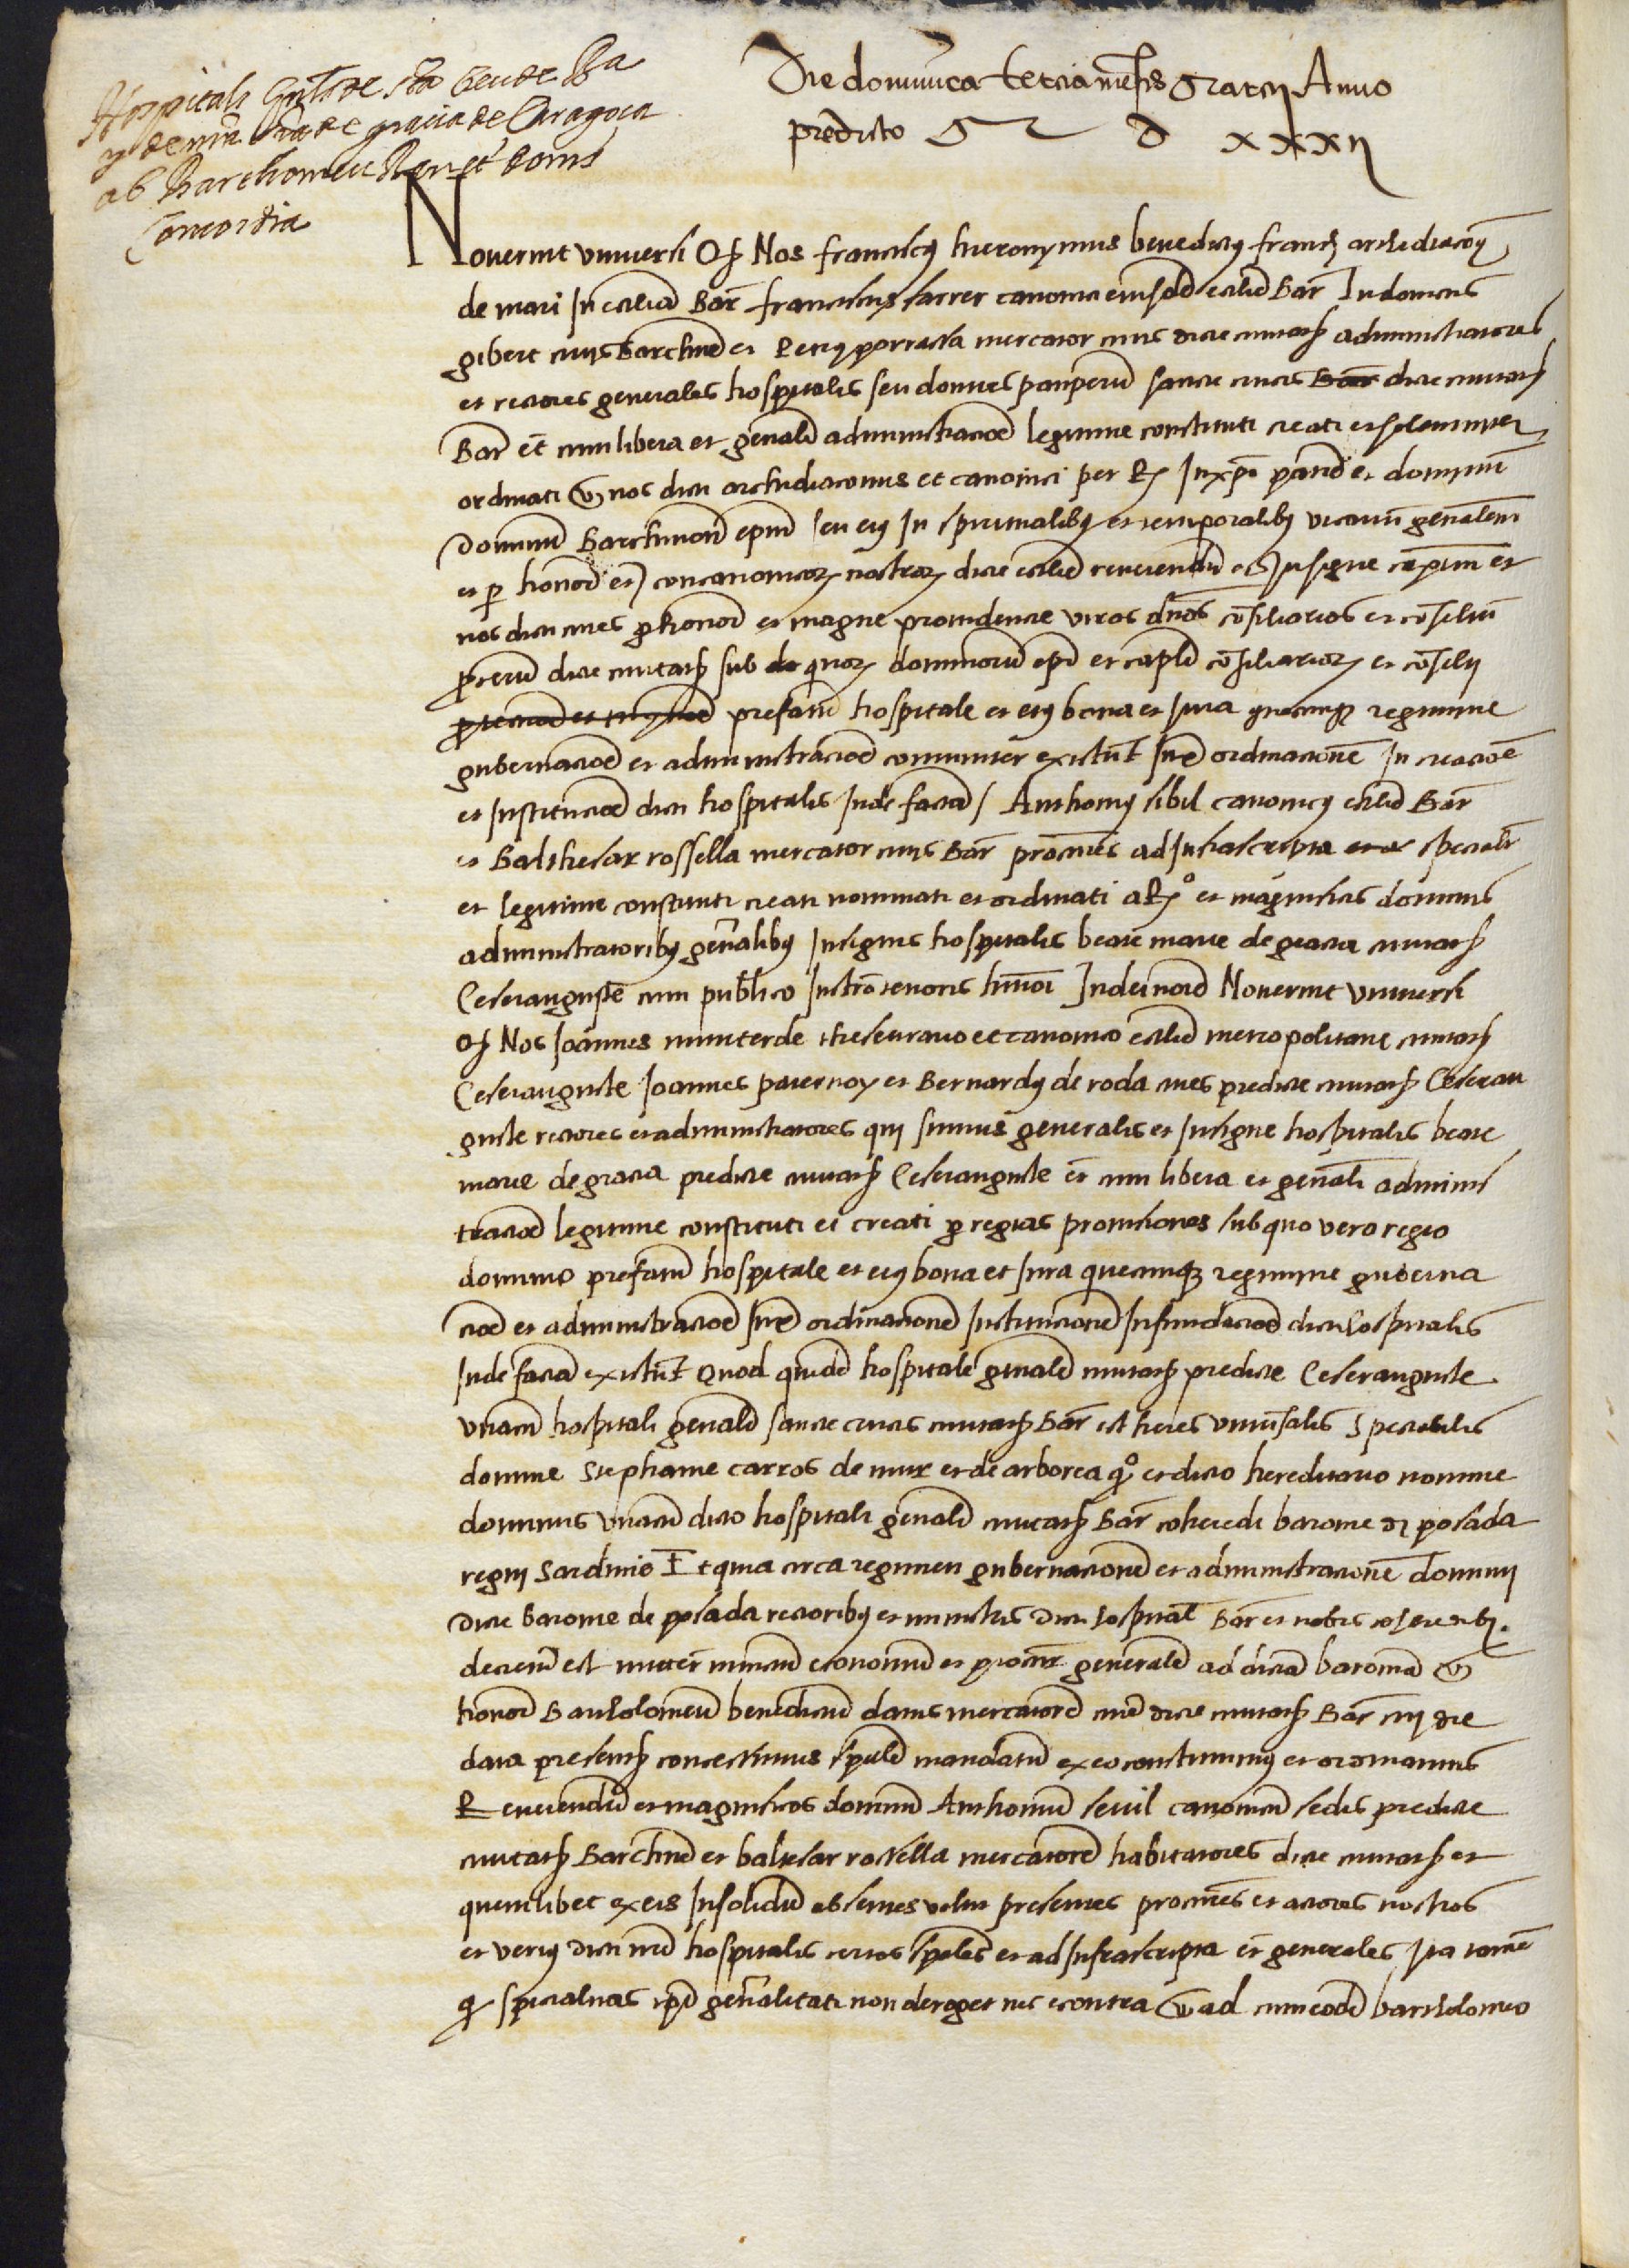 Hospitals Gnls de sta Creu de Ba
y de nra Sra de gracia de Çaragoça
ab Barthomeu Benet doms
Concordia
Die dominica tercia mensis Marcij Anno
predicto M D xxxij
Noverint universi Q Nos franciscus hieronymus benedictus franch archidiaconus
de mari In ecclia Bar franciscus sarrer canonici eiusdem ecclie Bar Indomens
gibert civis Barchne et Petrus porrassa mercator civis dicte civitatis administratores
et rectores generales hospitalis seu domus pauperum sancte crucis dicte civitatis
Bar et cum libera et generali administracione legitime constituti creati et solemniter
ordinati nos dicti archidiaconus et canonici per R In xpo patrem et dominum
dominum Barchinon epm seu eius In spiritualibus et temporalibus vicarium generalem
et per honor et concanonicor nostror dicte ecclie reverendum et Insigne capitlum et
nos dicti cives per honor et magne providencie viros dnos consiliarios et consilium
procerum dicte civitatis sub quor dominorum epi et capli consiliarior et consilij
prefatum hospitale et eius bona et Iura quecumque regimine
gubernacione et administracione comuniter existunt Iuxta ordinacionem In creacione
et Institucione dicti hospitalis Inde factam / Anthonius sibil canonicus ecclie Bar
et Balthesar rossella mercator civis Bar procures ad Infrascripta specialr
et legitime constituti creati nominati et ordinati a Rdo et magnificis dominis
administratoribus generalibus Insignis hospitalis beate marie de gracia civitatis
Cesarauguste cum publico Instro tenoris huiusmodi Inde in mod Noverint universi
Q Nos Joannes munterde thesaurario et canonico ecclie metropolitane civitatis
Cesarauguste Joannes paternoy et Bernardus de roda cives predicte civitatis Cesarau
guste rectores et administratores qui sumus generalis et Insigne hospitalis beate
marie de gracia predicte civitatis Cesarauguste et cum libera et generali adminis
tracione legitime constituti et creati per regias provisiones sub quo vero regio
domino prefatum hospitale et eius bona et Iura quecumque regimine guberna
cione et administracione Iuxta ordinacionem Institucionem In fundacione dicti hospitalis
Inde factam existunt Quod quidem hospitale generale civitatis predicte Cesarauguste
unacum hospitali generali sancte crucis civitatis Bar est heres universalis Spectabilis
domine Stephanie carros de mur et de arborea qo et dicto hereditario nomine
dominus unacum dicto hospitali generali civitatis Bar coheredi baronie de posada
regni Sardinie Et quia circa regimen gubernacionem et administracionem domini
dicte baronie de posada rectoribus et ministris dicti hospitalis Bar et nobis coheredibus
decretum est mittere nuncium economum et procurem generalem ad dictam baroniam
honor Bartolomeum benedictum dams mercatorem civem dicte civitatis Bar cui die
data presentis concessimus spule mandatum ex eo constituimus et ordinamus
Reverendum et magnificos dominum Anthonium sevil canonicum sedis predicte
civitatis Barchne et baltesar rossella mercatorem habitatores dicte civitatis et
quemlibet ex eis Insolidum absentes velut presentes procures et actores nostros
et verius dicti nri hospitalis certos spales et ad Infrascripta et generales Ita tamen
q specialitas ipsi generalitati non deroget nec econtra ad cum eodem bartholomeo